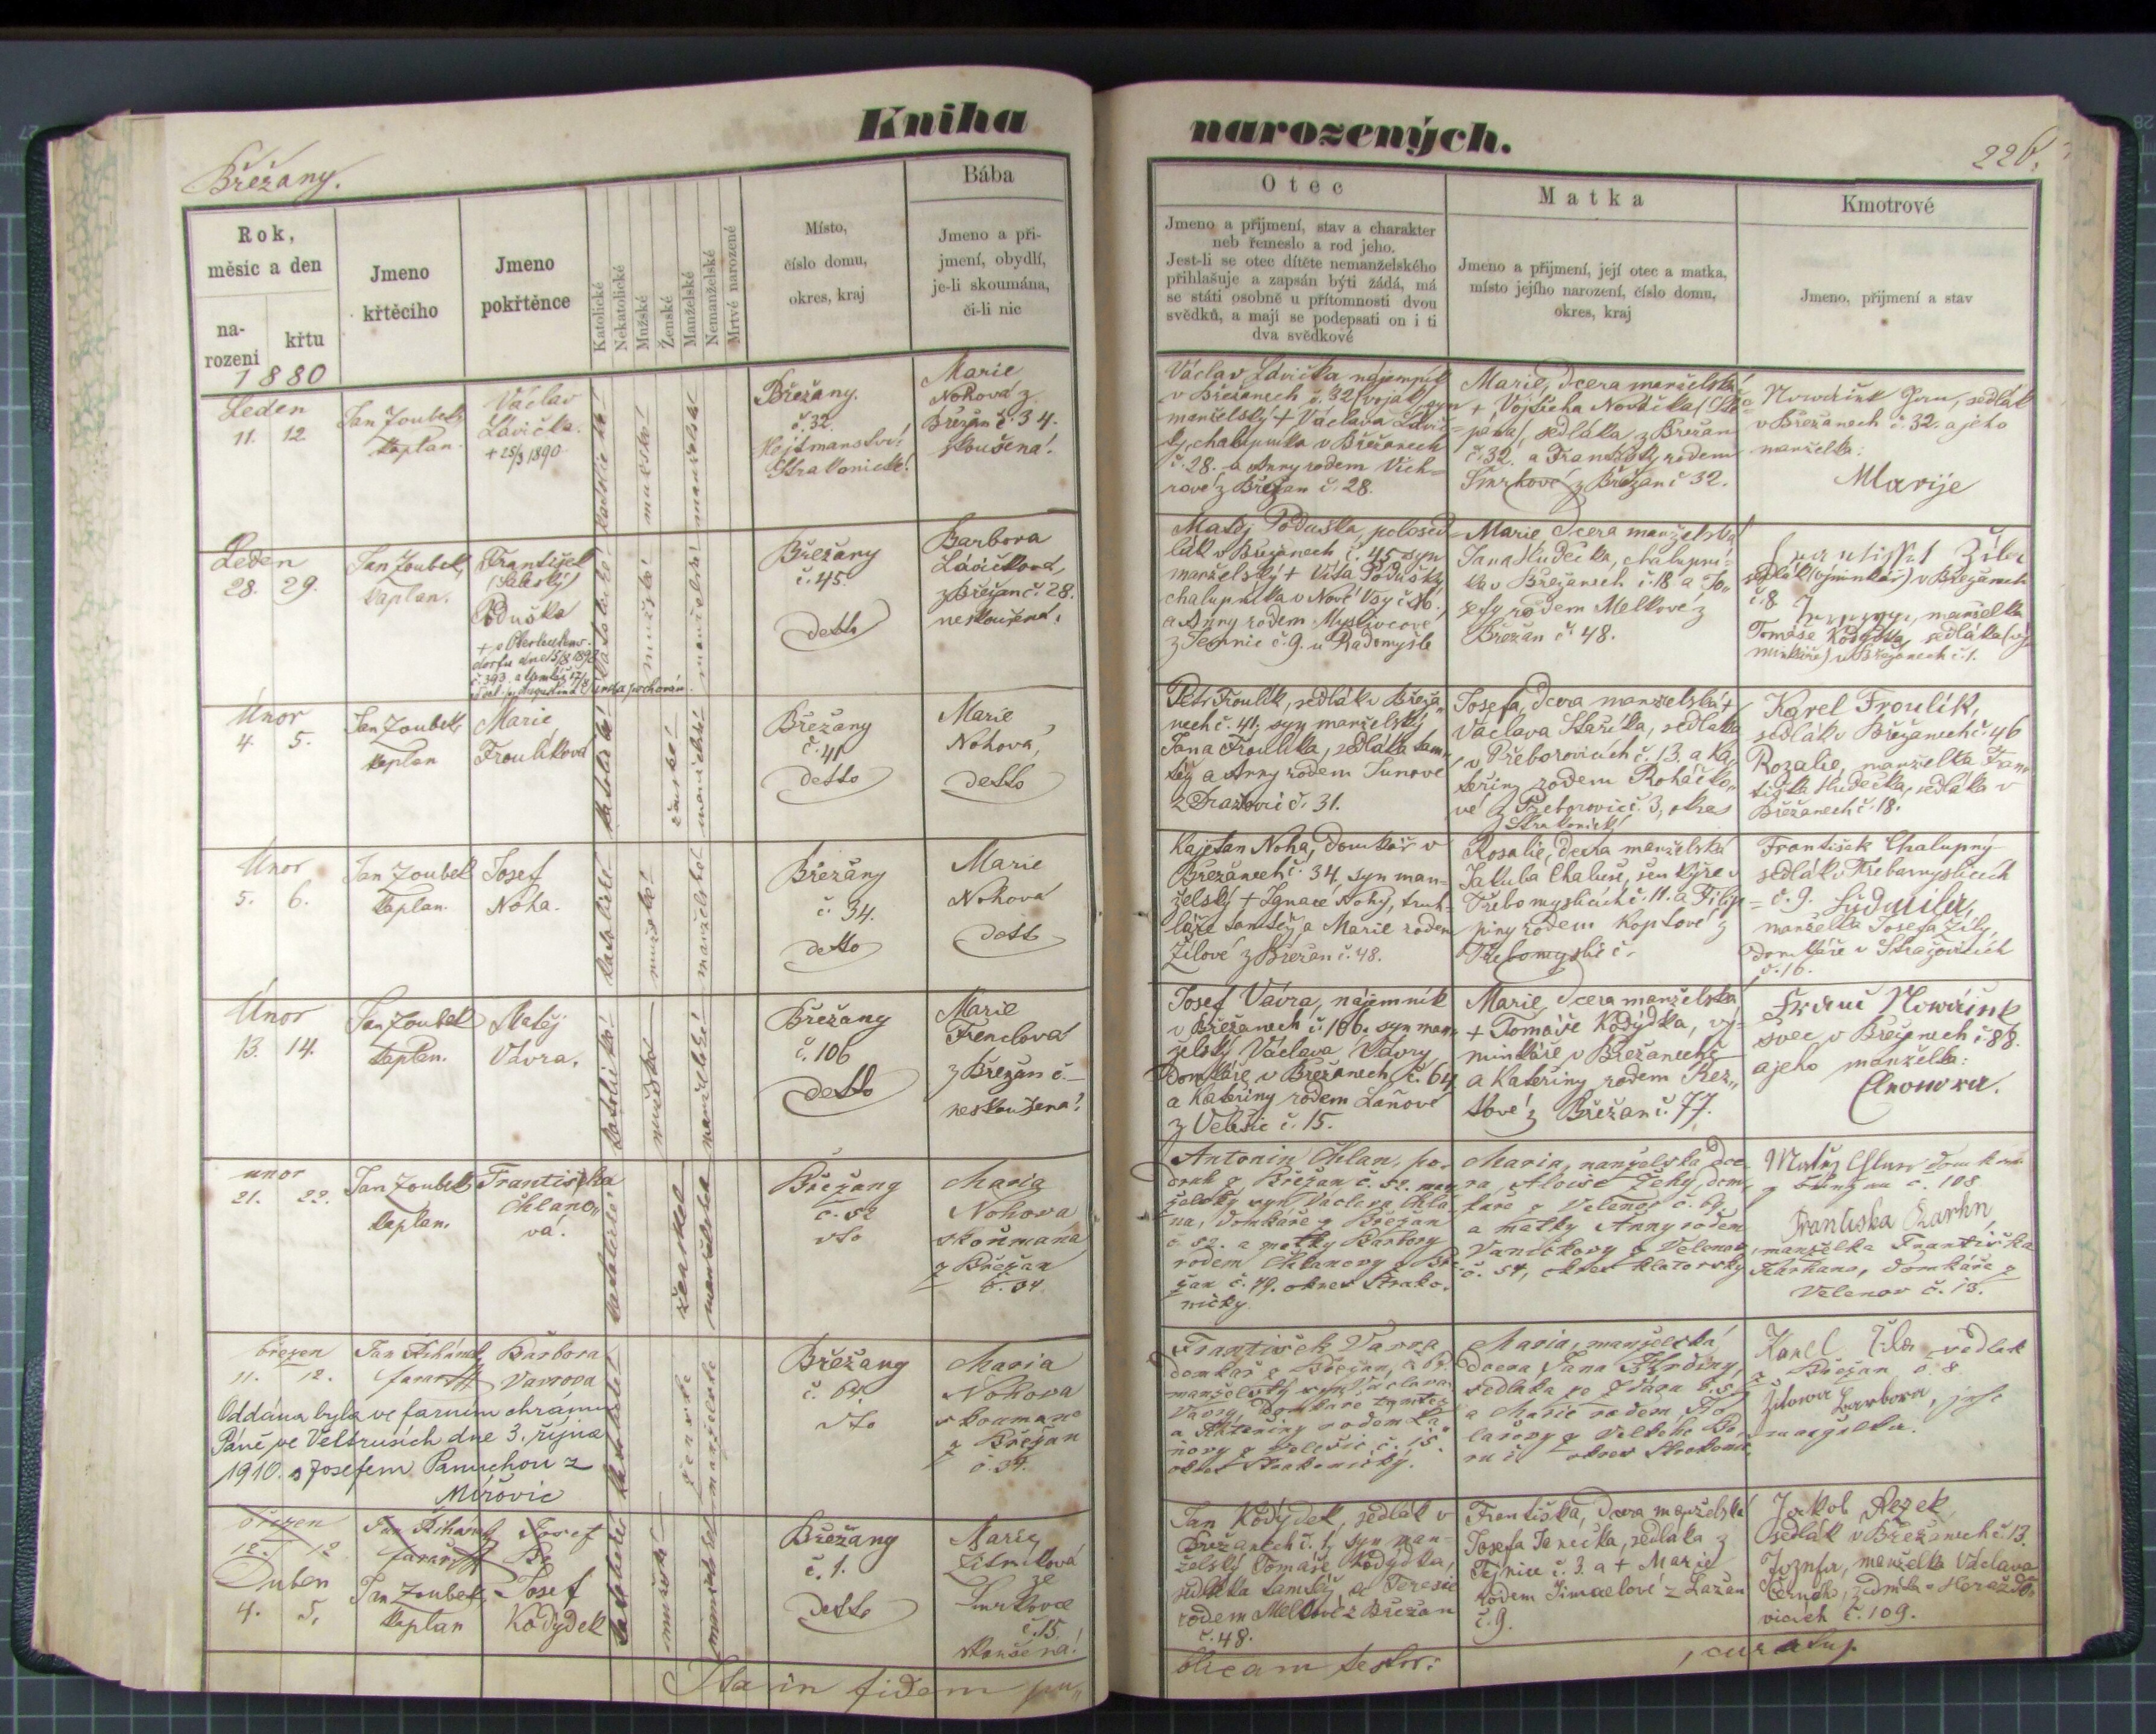 Kniha
narozených.
Břežany.
226.
Rok,
měsíc a den
na-
rození
křtu
Jmeno
křtěcího
Jmeno
pokřtěnce
Katolické
Nekatolické
Mužské
Ženské
Manželské
Nemanželské
Mrtvé narozené
Místo,
číslo domu,
okres, kraj
Bába
Jmeno a při-
jmení, obydlí,
je-li skoumána,
či-li nic
Otec
Jmeno a přijmení, stav a charakter
neb řemeslo a rod jeho.
Jest-li se otec dítěte nemanželského
přihlašuje a zapsán býti žádá, má
se státi osobně u přítomnosti dvou
svědků, a mají se podepsati on i ti
dva svědkové
Matka
Jmeno a přijmení, její otec a matka,
místo jejího narození, číslo domu,
okres, kraj
Kmotrové
Jmeno, přijmení a stav
1880
Leden
11. 12.
Jan Zoubek,
kaplan.
Václav
Lávička.
+ 25/3 1890
katolické
mužské
manželské
Břežany.
č. 32.
Hejtmanství
Strakonické
Marie
Nohová z
Břežan č. 34.
skoušená
Václav Lávička nájemník
v Břežanech č. 32 (voják) syn
manželský + Václava Lávič-
ky, chalupníka v Břežanech
č. 28. a Anny rodem Vích-
rové z Břežan č. 28.
Marie, dcera manželská
+ Vojtěcha Nováčka (Ště-
pána), sedláka z Břežan
č. 32. a Františky rodem
Smrkové z Břežan č 32.
Nowáček Jan, sedlák
v Břežanech č. 32. a jeho
manželka:
Marije
Leden
28. 29.
Jan Zoubek,
kaplan.
František
(Saleský)
Poduška
katolické
mužské
manželské
Břežany
č. 45
detto
Barbora
Lávičková
z Břežan č. 28.
neskoušená
Matěj Poduška, polosed-
lák v Břežanech č. 45 syn
manželský + Víta Podušky
chalupníka v Nové Vsy č. 16.
a Anny rodem Myslivcové
z Jemnic č. 9. u Radomyšle
Marie, dcera manželská
Jana Hudečka, chalupní-
ka v Břežanech č. 18 a Jo-
sefy rodem Melkové z
Břežan č. 48.
sedlák (výminkář) v Břežanech
č. 8
manželka
Tomáše Kodýdka, sedláka (vý-
minkáře) v Břežanech č. 1.
Únor
4. 5.
Jan Zoubek,
kaplan
Marie
Froulíková
katolické
ženské
manželské
Břežany
č. 41
detto
Marie
Nohová,
detto
Petr Froulík, sedlák v Břeža-
nech č. 41, syn manželský
Jana Froulíka, sedláka tam-
též a Anny rodem Junové
z Dražovic č. 31.
Josefa, dcera manželská +
Václava Staříka, sedláka
v Přeborovicích č. 13. a Ka-
teřiny rodem Roháčko-
vé z Přeborovic č. 3, okres
Strakonický
Karel Froulík,
sedlák v Břežanech č. 46
Rozalie, manželka Fran-
tiška Hudečka, sedláka v
Břežanech č. 18.
Únor
5. 6.
Jan Zoubek
kaplan.
Josef
Noha.
katolické
mužské
manželské
Břežany
č. 34.
detto
Marie
Nohová
detto
Kajetan Noha, domkář v
Břežanech č. 34. syn man-
želský + Ignace Nohy, truh-
láře tamtéž a Marie rodem
Žílové z Břežan č. 48.
Rosalie, dcera manželská
Jakuba Chaluse, šenkýře v
Třebomyslicích č. 11. a Filip-
piny rodem Koptové z
Třebomyslic č.
František Chalupný
sedlák v Třebomyslicích
č. 9. Ludmila,
manželka Josefa Žíly,
domkáře v Stražovicích
č. 16.
Únor
13. 14.
Jan Zoubek
kaplan.
Matěj
Vávra.
katolické
mužské
manželské
Břežany
č. 106
detto
Marie
Frenclová
z Břežan č. –
neskoušená
Josef Vávra, nájemník
v Břežanech č. 106. syn man-
želský Václava Vávry
domkáře v Břežanech č. 64
a Kateřiny rodem Laňové
z Velešic č. 15.
Marie, dcera manželská
+ Tomáše Kodýdka, vý-
minkáře v Břežanech č.
a Kateřiny rodem Rez-
kové z Břežan č. 77.
Franc Nowáček
švec v Břežanech č. 88.
a jeho manželka:
Eleonora.
únor
21. 22.
Jan Zoubek
kaplan.
Františka
Chlano-
vá.
katolické
ženské
manželské
Břežany
č. 52
dto
Maria
Nohova
skoumana
z Břežan
č. 34.
Antonín Chlan, po-
druh z Břežan č. 52. man-
želský syn Václava Chla-
na, domkáře z Břežan
č. 52. a matky Barbory
rodem Chlanovy z Bře-
žan č. 49. okres Strako-
nický.
Maria, manželská dce-
ra Aloise Čehy, dom-
káře z Velenov č. 69.
a matky Anny rodem
Vaničkovy z Velenov
č. 54, okres Klatovský
Matěj Chlan domkař
z Břežan č. 108
Františka Karhan,
manželka Františka
Karhana, domkáře z
Velenov č. 13.
březen
11. 12.
Jan Říhánek
farář
Barbora
Vavrova
Oddána byla ve farním chrámu
Páně ve Veltrusích dne 3. října
1910. s Josefem Panuchou z
Mirovic
katolické
ženské
manželské
Břežany
č. 64
dto
Maria
Nohova
skoumana
z Břežan
č. 34.
František Vavra
domkář z Břežan, č. 64.
manželský syn Václava
Vavry, domkáře tamtéž
a Kateřiny rodem La-
ňovy z Velešic č. 15.
okres Strakonický.
Maria, manželská
dcera Jana
sedláka ze
a Marie rodem
z Velkého Bo-
ru č. okres Strakonic.
Karel Žíla sedlák
z Břežan č. 8.
Žílowa Barbora, jeho
manželka.
březen
12. 12
Jan Říhánek
farář
Josef
Duben
4. 5.
Jan Zoubek,
kaplan
Josef
Kodýdek
katolické
mužské
manželské
Břežany
č. 1.
detto
Marie
ze
Smrkovce
č. 15.
skoušená
Jan Kodýdek, sedlák v
Břežanech č. 1, syn man-
želský Tomáše Kodýdka,
sedláka tamtéž a Teresie
rodem Melkové z Břežan
č. 48.
Františka, dcera manželská
Josefa Janečka, sedláka z
Tejnice č. 3. a + Marie
rodem Šimáčlové z Lažan
č. 9.
Jakob Rezek
sedlák v Břežanech č. 13.
Josefa, manželka Václava
v Horažďo-
vicích č. 109.
Ita in fidem pu-
blicam testor: